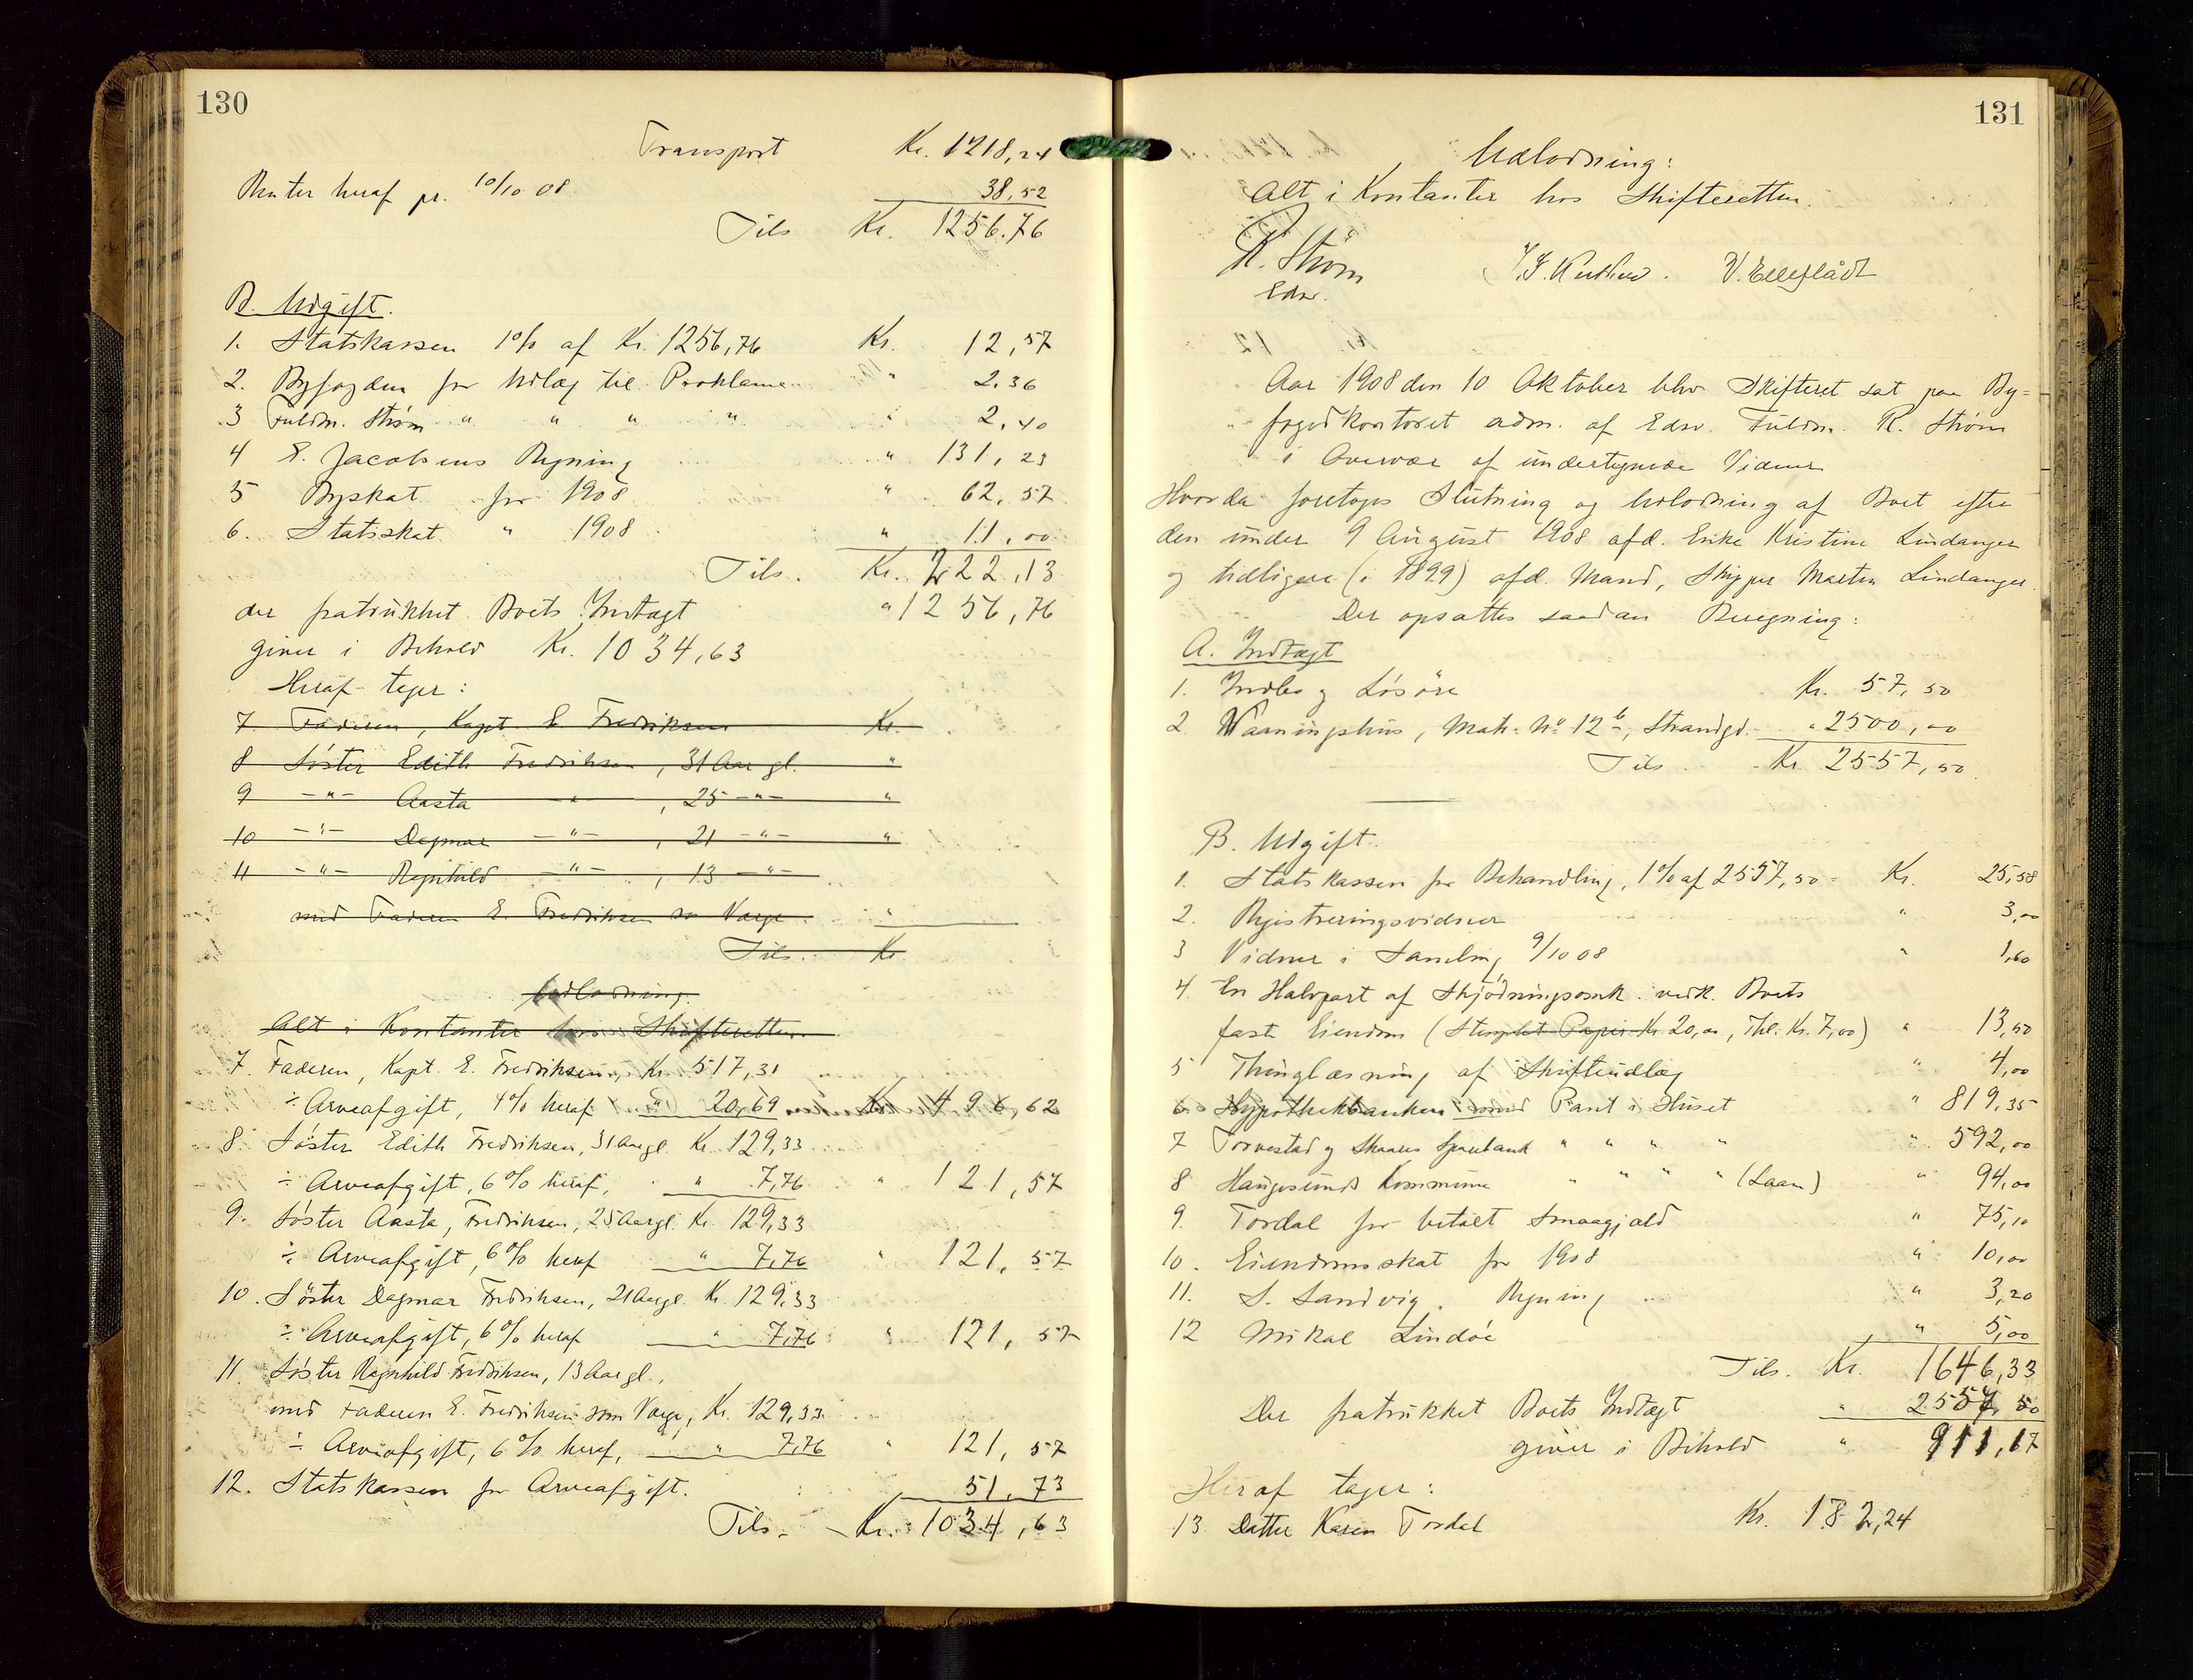 130
Transport Kr. 1218,24
Renter heraf pr. 10/10 08 38,52
Tils Kr. 1256.76
B. Udgift.
1. Statskassen 1% af Kr. 1256,76 Kr. 12,57
2. Byfogden for Udlæg til Proklama " 2,36
3 Fuldm. Strøm " " " " " 2,40
4 E. Jacobsens Regning " 131,23
5 Byskat for 1908 " 62,57
6. Statsskat " 1908 " 11,00
Tils. Kr. 222,13
der fratrukket Boets Indtægt " 1256,76
giver i Behold Kr. 1034,63
Heraf tager:
7. Faderen, Kapt E Fredriksen Kr.
8 Søster Edith Fredriksen, 31 Aar gl. "
9 -"- Aasta " , 25 -"- "
10 -"- Dagmar -"- , 21 -"- "
11 -"- Ragnhild -"- , 13 -"-
med Faderen E. Fredriksen so Værge "
Tils. Kr.
Udlodning.
Alt i Kontanter hos Skifteretten.
7. Faderen, Kapt. E. Fredriksen, Kr. 517,31
÷ Arveafgift, 4% heraf " 20,69 Kr. 496,62
8. Søster Edith Fredriksen, 31 Aar gl Kr. 129,33
÷ Arveafgift, 6% heraf, " 7,76 " 121,57
9. Søster Aasta, Fredriksen, 25 Aar gl. Kr. 129,33
÷ Arveafgift, 6% heraf " 7,76 " 121,57
10. Søster Dagmar Fredriksen, 21 Aar gl. Kr. 129,33
÷ Arveafgift, 6% heraf " 7,76 " 121,57
11. Søster Ragnhild Fredriksen, 13 Aar gl.,
med Faderen E. Fredriksen som Værge, Kr. 129,33
÷ Arveafgift, 6% heraf, " 7,76 " 121,57
12. Statskassen for Arveafgift. 51,73
Tils. Kr. 1034,63
131
Udlodning:
Alt i Kontanter hos Skifteretten.
R. Strøm V. Elleflådt
Edsv.
Aar 1908 den 10 Oktober blev Skifteret sat paa By=
fogedkontoret adm. af Edsv. Fuldm. R. Strøm
i Overvær af undertegnede Vidner
Hvorda foretoges Slutning og Udlodning af Boet efter
den under 9 August 1908 afd. Enke Kristine Lindanger
og tidligere (i 1899) afd. Mand, Skipper Martin Lindanger.
Der opsattes saadan Beregning:
A. Indtægt
1. Indbo og Løsøre Kr. 57,50
2. Vaaningshus, Matr. No 12b, Strandgd. " 2500,00
Tils. Kr. 2557,50
B. Udgift.
1. Statskassen for Behandling, 1% af 2557,50 = Kr. 25,58
2. Registreringsvidner " 3,00
3 Vidner i Samling 9/10 08 " 1,60
4. En Halvpart af Skjødningsomk. vedk. Boets
fast Eiendom (Stemplet Papir Kr. 20,00, Thl. Kr. 7,00) " 13,50
5 Thinglæsning af Skifteudlæg " 4,00
6 Hypothekbanken med Pant i Huset " 819,35
7 Torvestad og Skaare Sparebank " " " " " 592,00
8 Haugesunds Kommune " " " " (Laan) " 94,00
9. Tordal for betalt Smaagjæld " 75,10
10. Eiendomsskat for 1908 " 10,00
11. S. Sandvig. Regning " 3,20
12 Mikal Lindøe " 5,00
Tils. Kr. 1646,33
Der fratrukket Boets Indtægt " 2557,50
giver i Behold " 911,17
Heraf tager:
13 Datter Karen Tordal Kr. 182,24